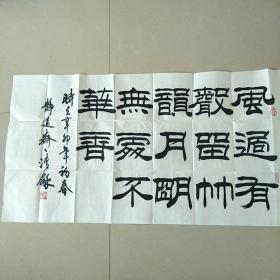 風過有
聲留竹
韻月明
無處不
華香
時在辛卯年初春